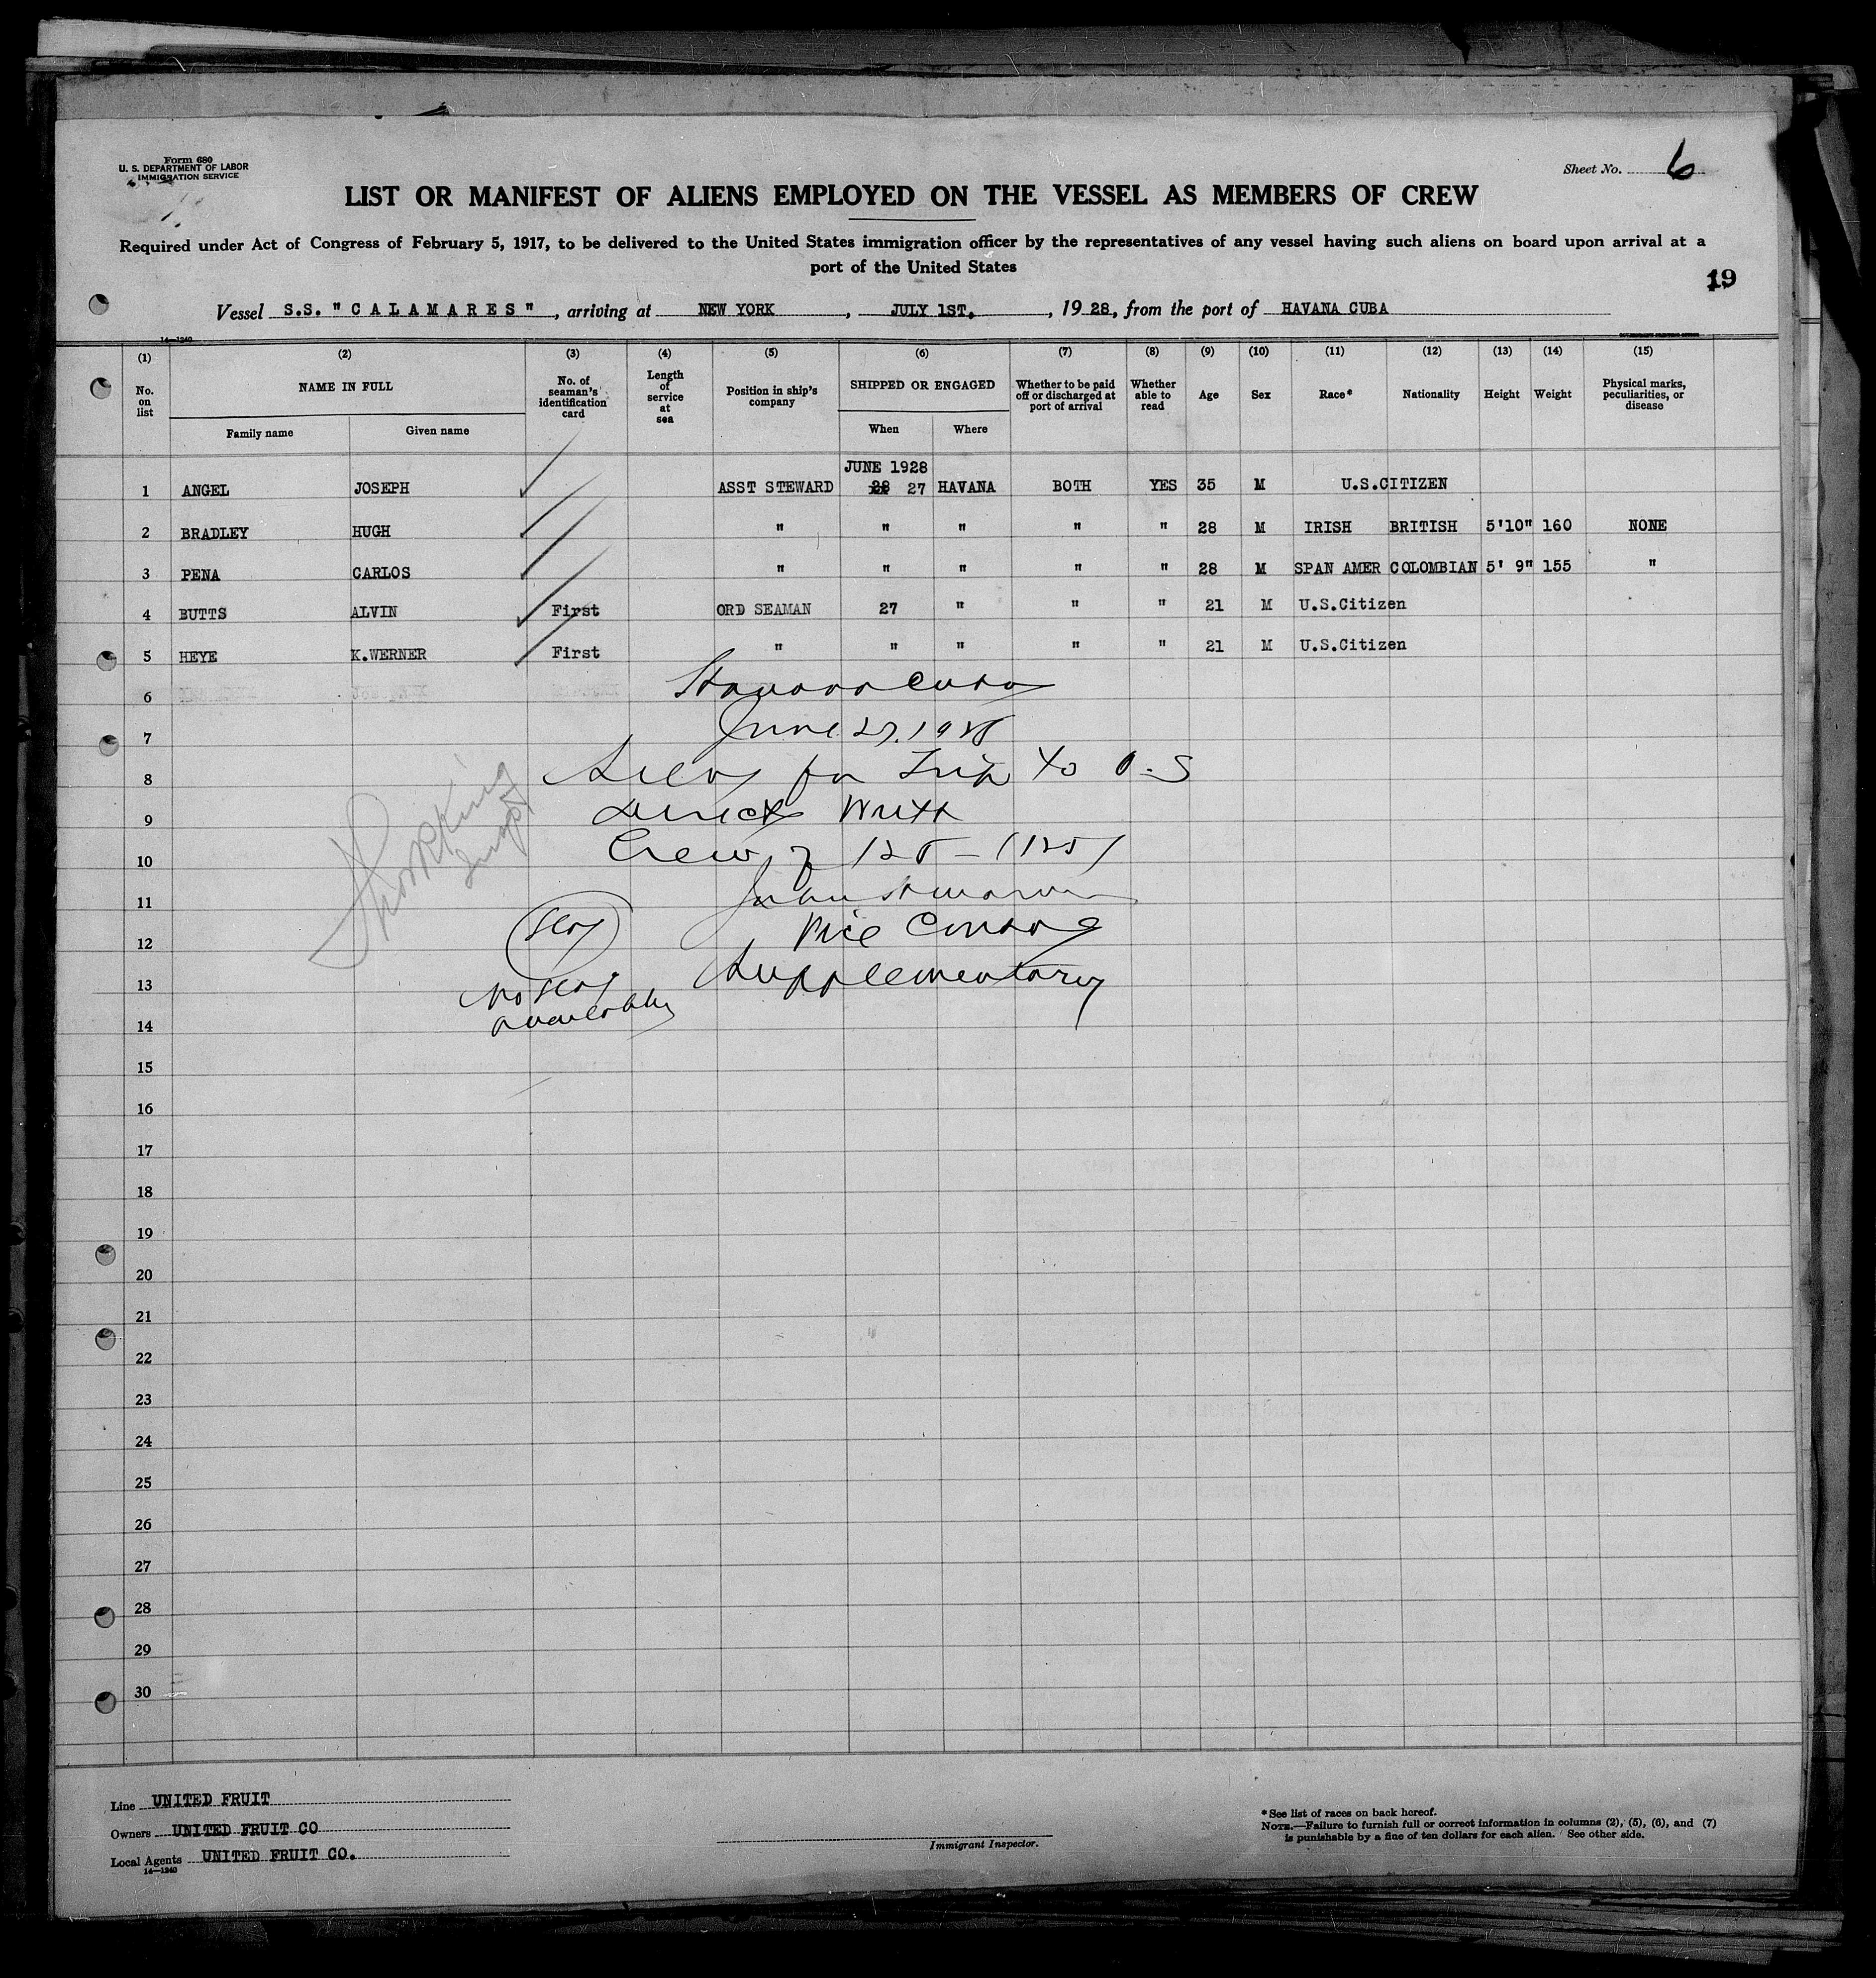 Form 680
U. S. DEPARTMENT OF LABOR
IMMIGRATION SERVICE
Sheet No. 6
LIST OR MANIFEST OF ALIENS EMPLOYED ON THE VESSEL AS MEMBERS OF CREW
Required under Act of Congress of February 5, 1917, to be delivered to the United States immigration officer by the representatives of any vessel having such aliens on board upon arrival at a
port of the United States
19
Vessel S.S. "CALAMARES", arriving at NEW YORK, JULY 1ST, 1928, from the port of HAVANA CUBA
14—1240
(1) (2) (3) (4) (5) (6) (7) (8) (9) (10) (11) (12) (13) (14) (15)
No. on list NAME IN FULL No. of seaman's identification card Length of service at sea Position in ship's company SHIPPED OR ENGAGED Whether to be paid off or discharged at port of arrival Whether able to read Age Sex Race* Nationality Height Weight Physical marks, peculiarities, or disease
Family name Given name When Where
JUNE 1928
1 ANGEL JOSEPH ASST STEWARD 28 27 HAVANA BOTH YES 35 M U.S.CITIZEN
2 BRADLEY HUGH " " " " " 28 M IRISH BRITISH 5'10" 160 NONE
3 PENA CARLOS " " " " " 28 M SPAN AMER COLOMBIAN 5' 9" 155 "
4 BUTTS ALVIN First ORD SEAMAN 27 " " " 21 M U.S.Citizen
5 HEYE K.WERNER First " " " " " 21 M U.S.Citizen
6 Havana Cuba
7 June 27, 1928
8 for Trip to U.S
9 direct with
10 Crew of 125 - (125)
11
12 Vice Consul
13 Supplementary
no seal
14 available
15
16
17
18
19
20
21
22
23
24
25
26
27
28
29
30
Line UNITED FRUIT
Owners UNITED FRUIT CO
Local Agents UNITED FRUIT CO.
14—1240
Immigrant Inspector.
*See list of races on back hereof.
NOTE.—Failure to furnish full or correct information in columns (2), (5), (6), and (7)
is punishable by a fine of ten dollars for each alien. See other side.